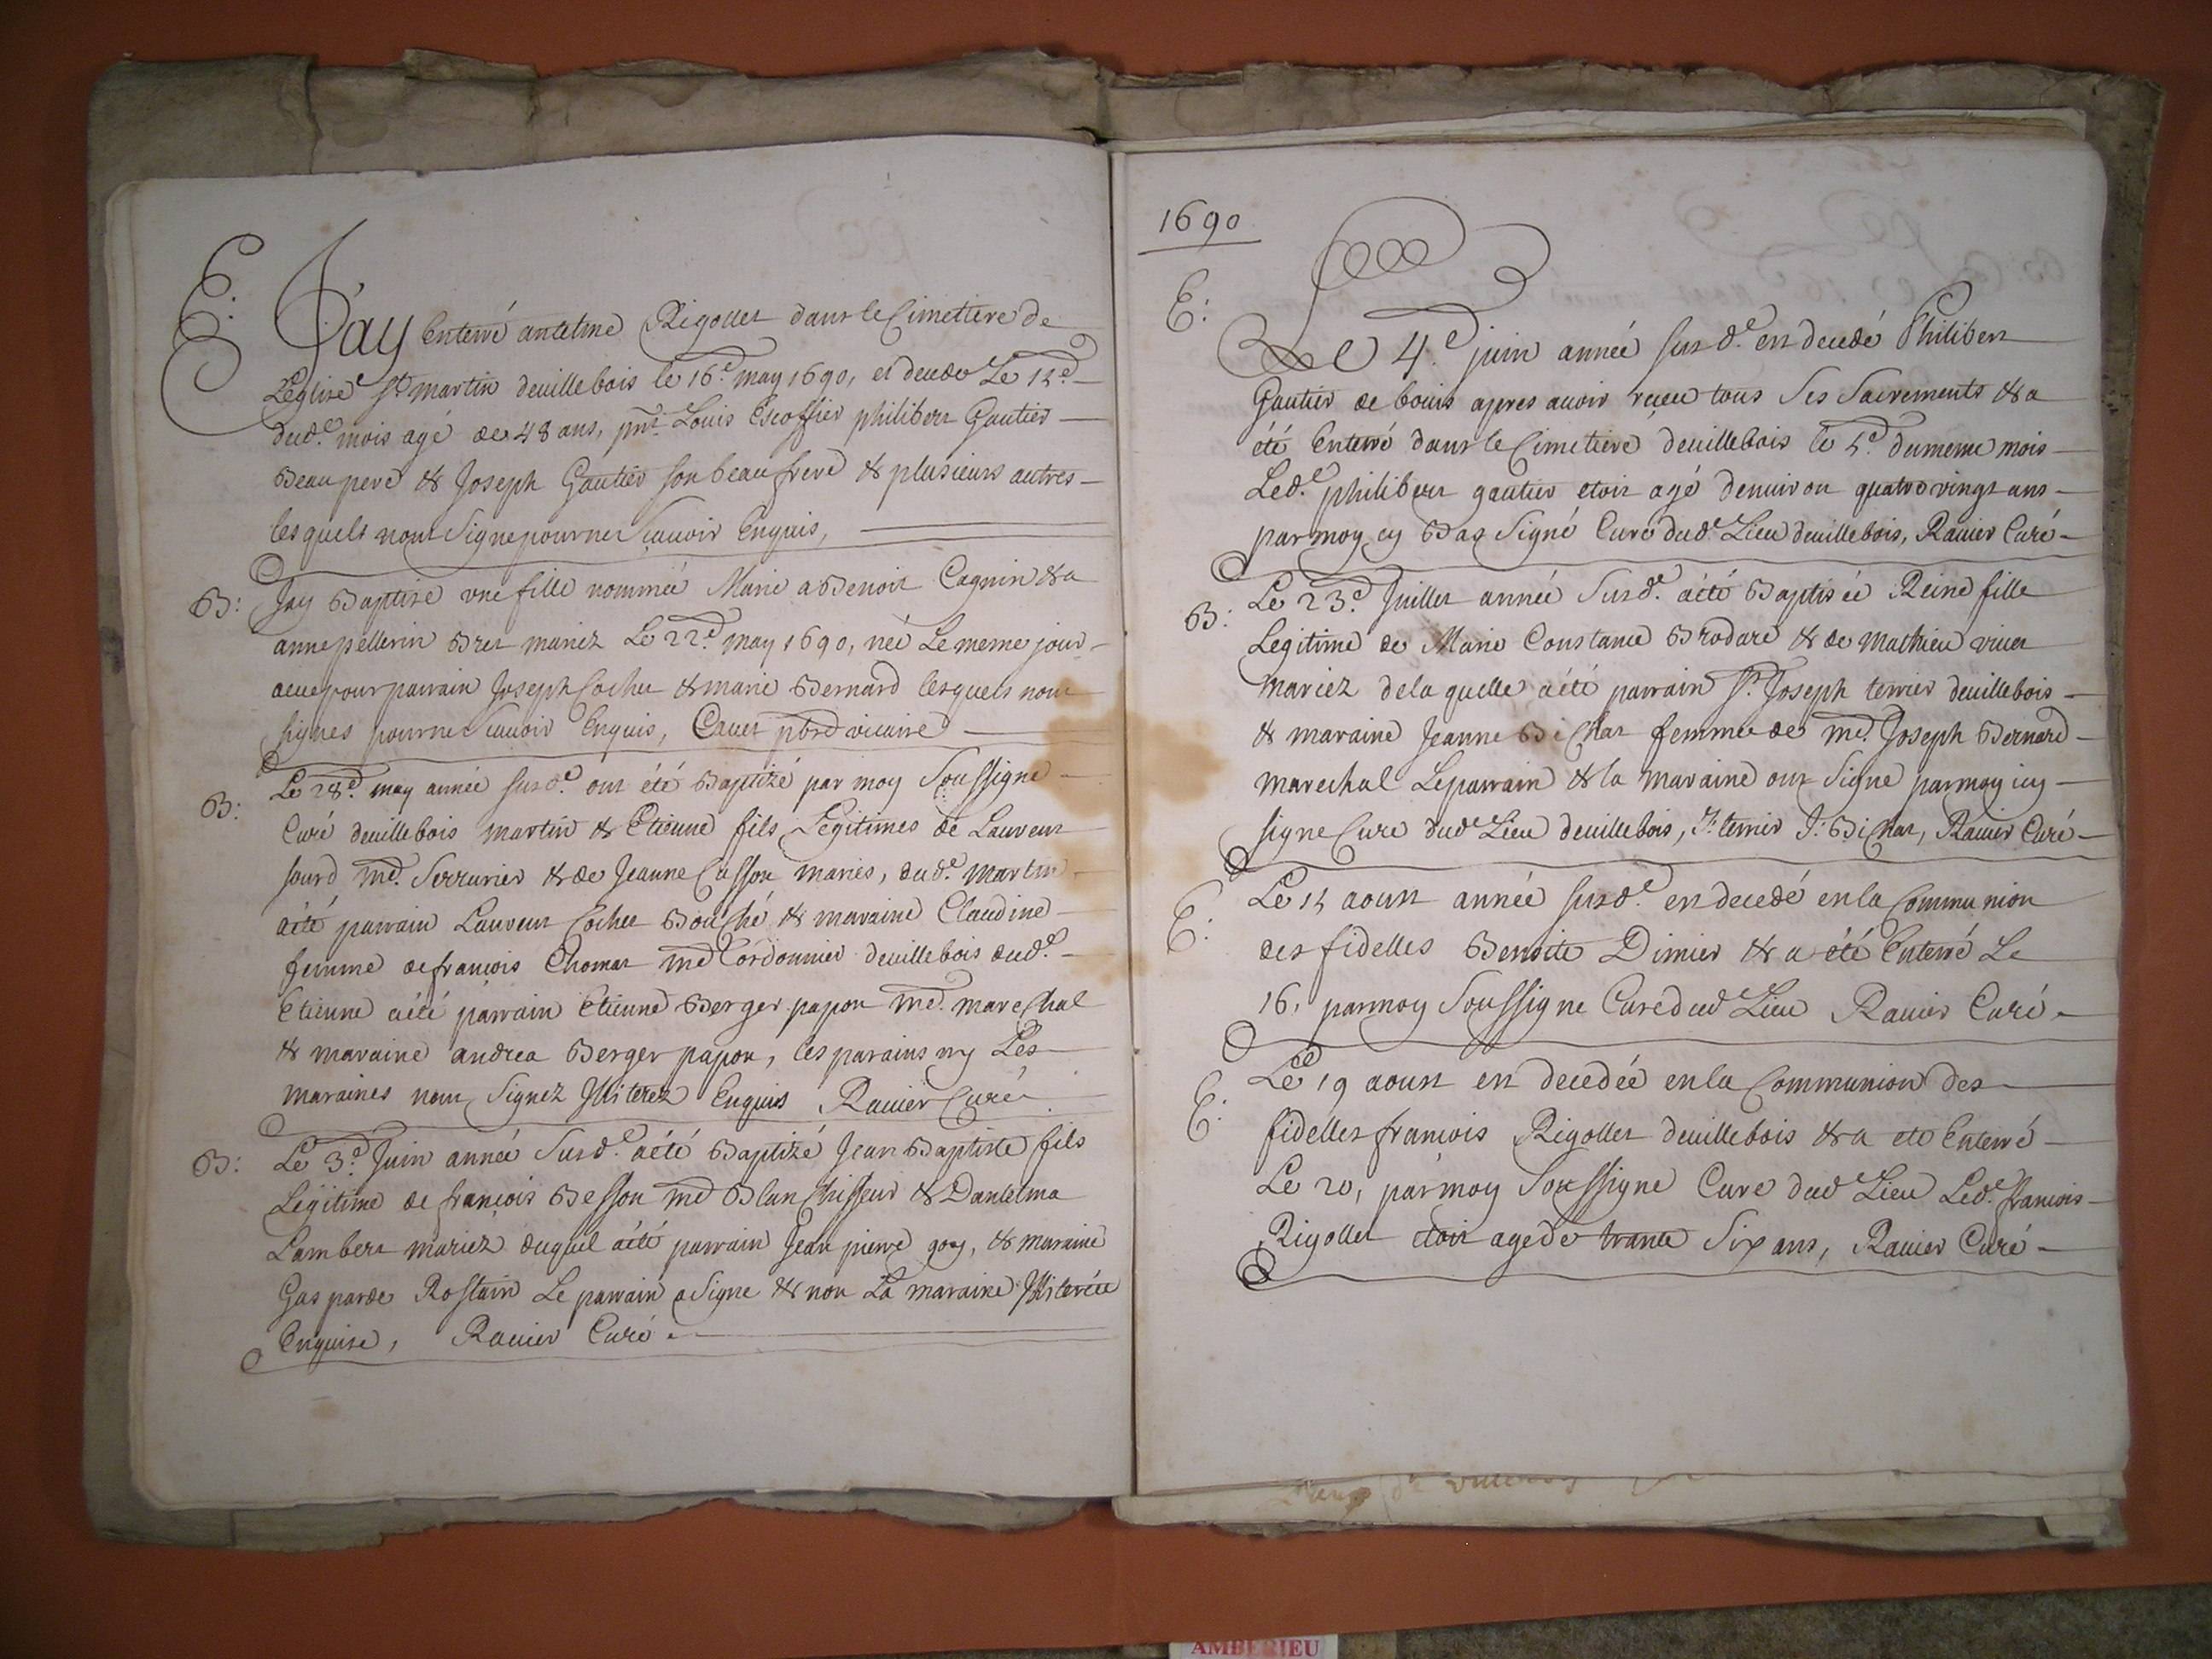 E:
Jay Enterré antelme Rigollet dans le Cimettiere de
L'eglise St martin deuillebois le 16e. may 1690, et decede Le 15e.
dud.e mois agé de 48 ans, pnt. Louis Escoffier philibert Gautier
Beaupere & Joseph Gautier son beaufrere & plusieurs autres
lesquels nont Signe pour ne Scavoir Enquis,
B: Jay Baptise une fille nommée Marie a Benoit Cagnin & a
anne pellerin Bret mariez Le 22e. may 1690, née Le meme jour
aeue pour parrain Joseph Cochet & marie Bernard lesquels nont
signes pour ne Scauoir Enquis, Cauet pbre vicaire
B: Le 28e. may année susd.e ont été Baptizé par moy Soussigne
Curé deuillebois martin & Etienne fils Legitimes de Laurent
sourd md. Serrurier & de Jeanne Casson mariés, dud.e Martin
aété parrain Laurent Cochet Bouché & maraine Claudine
femme de francois Chomat md Cordonnier deuillebois dud.e
Etienne aété parrain Etienne Berger papon md. mareChal
& maraine andrea Berger papon, les parains ny Les
maraines nont Signez Illiterez Enquis Rauier Curé
B: Le 3e. Juin année Susd.e aété Baptizé Jean Baptiste fils
Legitime de francois Besson md BlanChisseur & Dantelma
Lambert mariez duquel aété parrain Jean pierre goy, & maraine
Gasparde Rostain Le parrain a Signe & non La maraine Illiterée
Enquise, Rauier Curé
1690
E:
Le 4e. juin année susd.e est decedé Philibert
Gautier de bouis apres auoir reçeu tous Ses Sacrements & a
été Enterré dans le Cimetiere deuillebois le 5e. dumeme mois
Led.e philibert gautier etoit agé denuiron quatrevingt ans
par moy cy Bas Signé Curé dud.e Lieu deuillebois, Rauier Curé
B: Le 23e. Juillet année Susd.e aété Baptisée Reine fille
Legitime de Marie Constance Brodare & de Mathieu viuet
mariez dela quelle aété parrain Sr. Joseph terrier deuillebois
& maraine Jeanne BiChat femme de md. Joseph Bernard
marechal Leparrain & la maraine ont Signe parmoy icy
signe Cure dud.e Lieu deuillebois, J: terrier J: BiChat, Rauier Curé
E: Le 15 aoust année susd.e est decedé en la Communion
des fidelles Benoite Dimier & a été Enterré Le
16, parmoy Soussigne Curé dud.e Lieu Rauier Curé
E: Le 19 aoust est decedée en la Communion des
fidelles francois Rigollet deuillebois & a eté Enterré
Le 20, parmoy Soussigne Cure dud.e Lieu Led.e francois
Rigollet etoit agé de trante Six ans, Rauier Curé
AMBERIEU